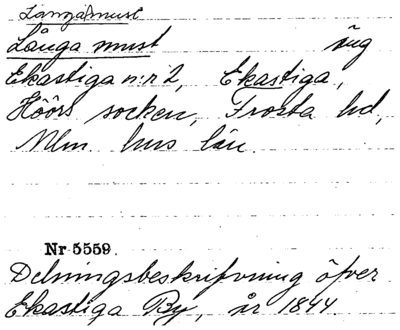 Långamust
Långa must äng
Ekastiga n:r 2, Ekastiga,
Höörs socken, Frosta hd,
Mlm. hus län.
Nr 5559.
Delningsbeskrifvning öfver
Ekastiga By, år 1844.